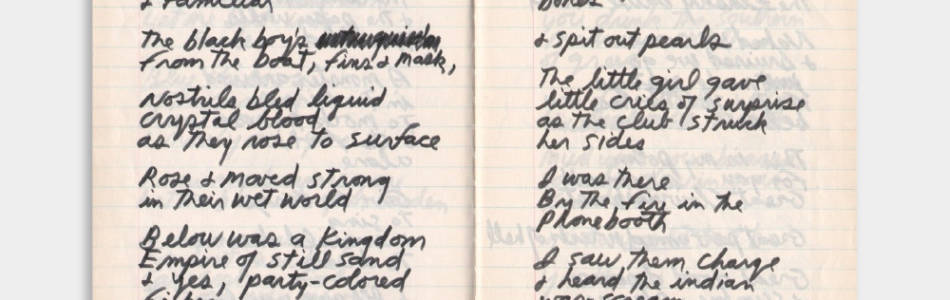 & familiar
The black boy's
from the boat, fins & mask,
Nostrils bled liquid
crystal blood
as they rose to surface
Rose & moved strong
in their wet world
Below was a Kingdom
Empire of still sand
& yes, party-colored
fishes
bones
& spit out pearls
The little girl gave
little cries of surprise
as the club struck
her sides
I was there
By the fire in the
Phonebooth
I saw them charge
& heard the indian
war-scream